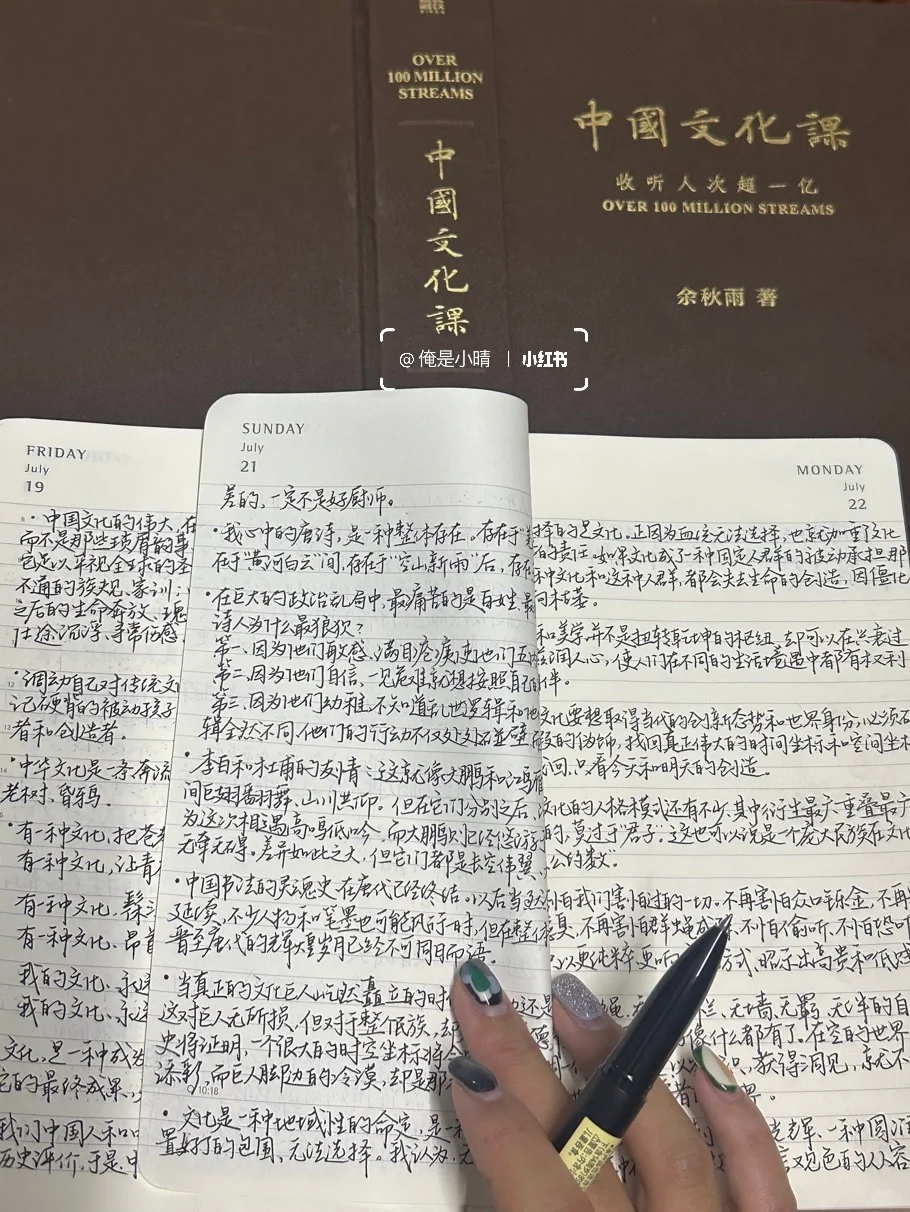 OVER
100 MILLION
STREAMS
中國文化課
中國文化課
收听人次超一亿
OVER 100 MILLION STREAMS
余秋雨 著
@俺是小晴 | 小红书
FRIDAY
July
19
·中国文化的伟大,在
而不是那些琐屑的事
包是以平视全球的圣
不通的族规、家训;
之后的生命奔放、瑰
仕途沉浮、寻常伤感
·调动自己对传统文
记硬背的被动孩子
者和创造者。
·中华文化是一条奔流
老树、昏鸦。
·有一种文化,把苍
有一种文化,让青
有一种文化
有一种文化,昂首
我的文化,永远
我的文化,永远
文化,是一种成为
它的最终成果,
我们中国人和
历史评价,于是,中
SUNDAY
July
21
差的,一定不是好厨师。
·我心中的唐诗,是一种整体存在。存在于
在于"黄河白云"间,存在于"空山新雨"后,存在
·在巨大的政治乱局中,最痛苦的是百姓,最
诗人为什么最狼狈?
第一、因为他们敏感,满目疮痍使他们五
第二、因为他们自信,一见危难就想按照自己的
第三、因为他们幼稚,不知道乱世逻辑和他
辑全然不同,他们的行动不仅处处碰壁
·李白和杜甫的友情:这就像大鹏和鸿雁
间巨翅翻舞,山川共仰。但在它们分别之后,
为这次相遇高鸣低吟,而大鹏则已经悠游于
无牵无碍。差异如此之大,但它们都是长空伟翼
·中国书法的灵魂史在唐代已经终结。以后当然
延续,不少人物和笔墨也可能风行一时,但在整体
晋至唐代的辉煌岁月已经不可同日而语。
·当真正的文化巨人屹然矗立的时
这对巨人无所损,但对于整个民族,却
史将证明,一个很大的时空坐标将会
添彩,而巨人脚边的冷漠,却是那
10:18
·文化是一种地域性的命定,是一
置好了的包围,无法选择。我认为,无
MONDAY
July
22
择的是文化。正因为血统无法选择,也就加重了文化
的责任。如果文化成了一种固定人群的被动承担,那
种文化和这种人群,都会失去生命的创造,因僵化
向枯萎。
和美学并不是扭转乾坤的枢纽,却可以在兴衰过
滋润人心,使人们在不同的生活境遇中都有权利
伴。
文化要想取得当代的创新态势和世界身份,必须
的伪饰,找回真正伟大的时间坐标和空间坐标
回,只看今天和明天的创造。
文化的人格模式还有不少,其中衍生最广、重叠最
的,莫过于"君子"。这也可以说是一个庞大民族在文化
公约数。
怕我们害怕过的一切。不再害怕众口铄金,不再
不再害怕群蝇成阵,不怕偷听,不怕恐吓
以更纯粹更响方式,昭示出高贵和低
无墙、无羁、无绊的自
像什么都有了。在空的世界
识,获得洞见,就不
光辉、一种圆润
言观色的从容